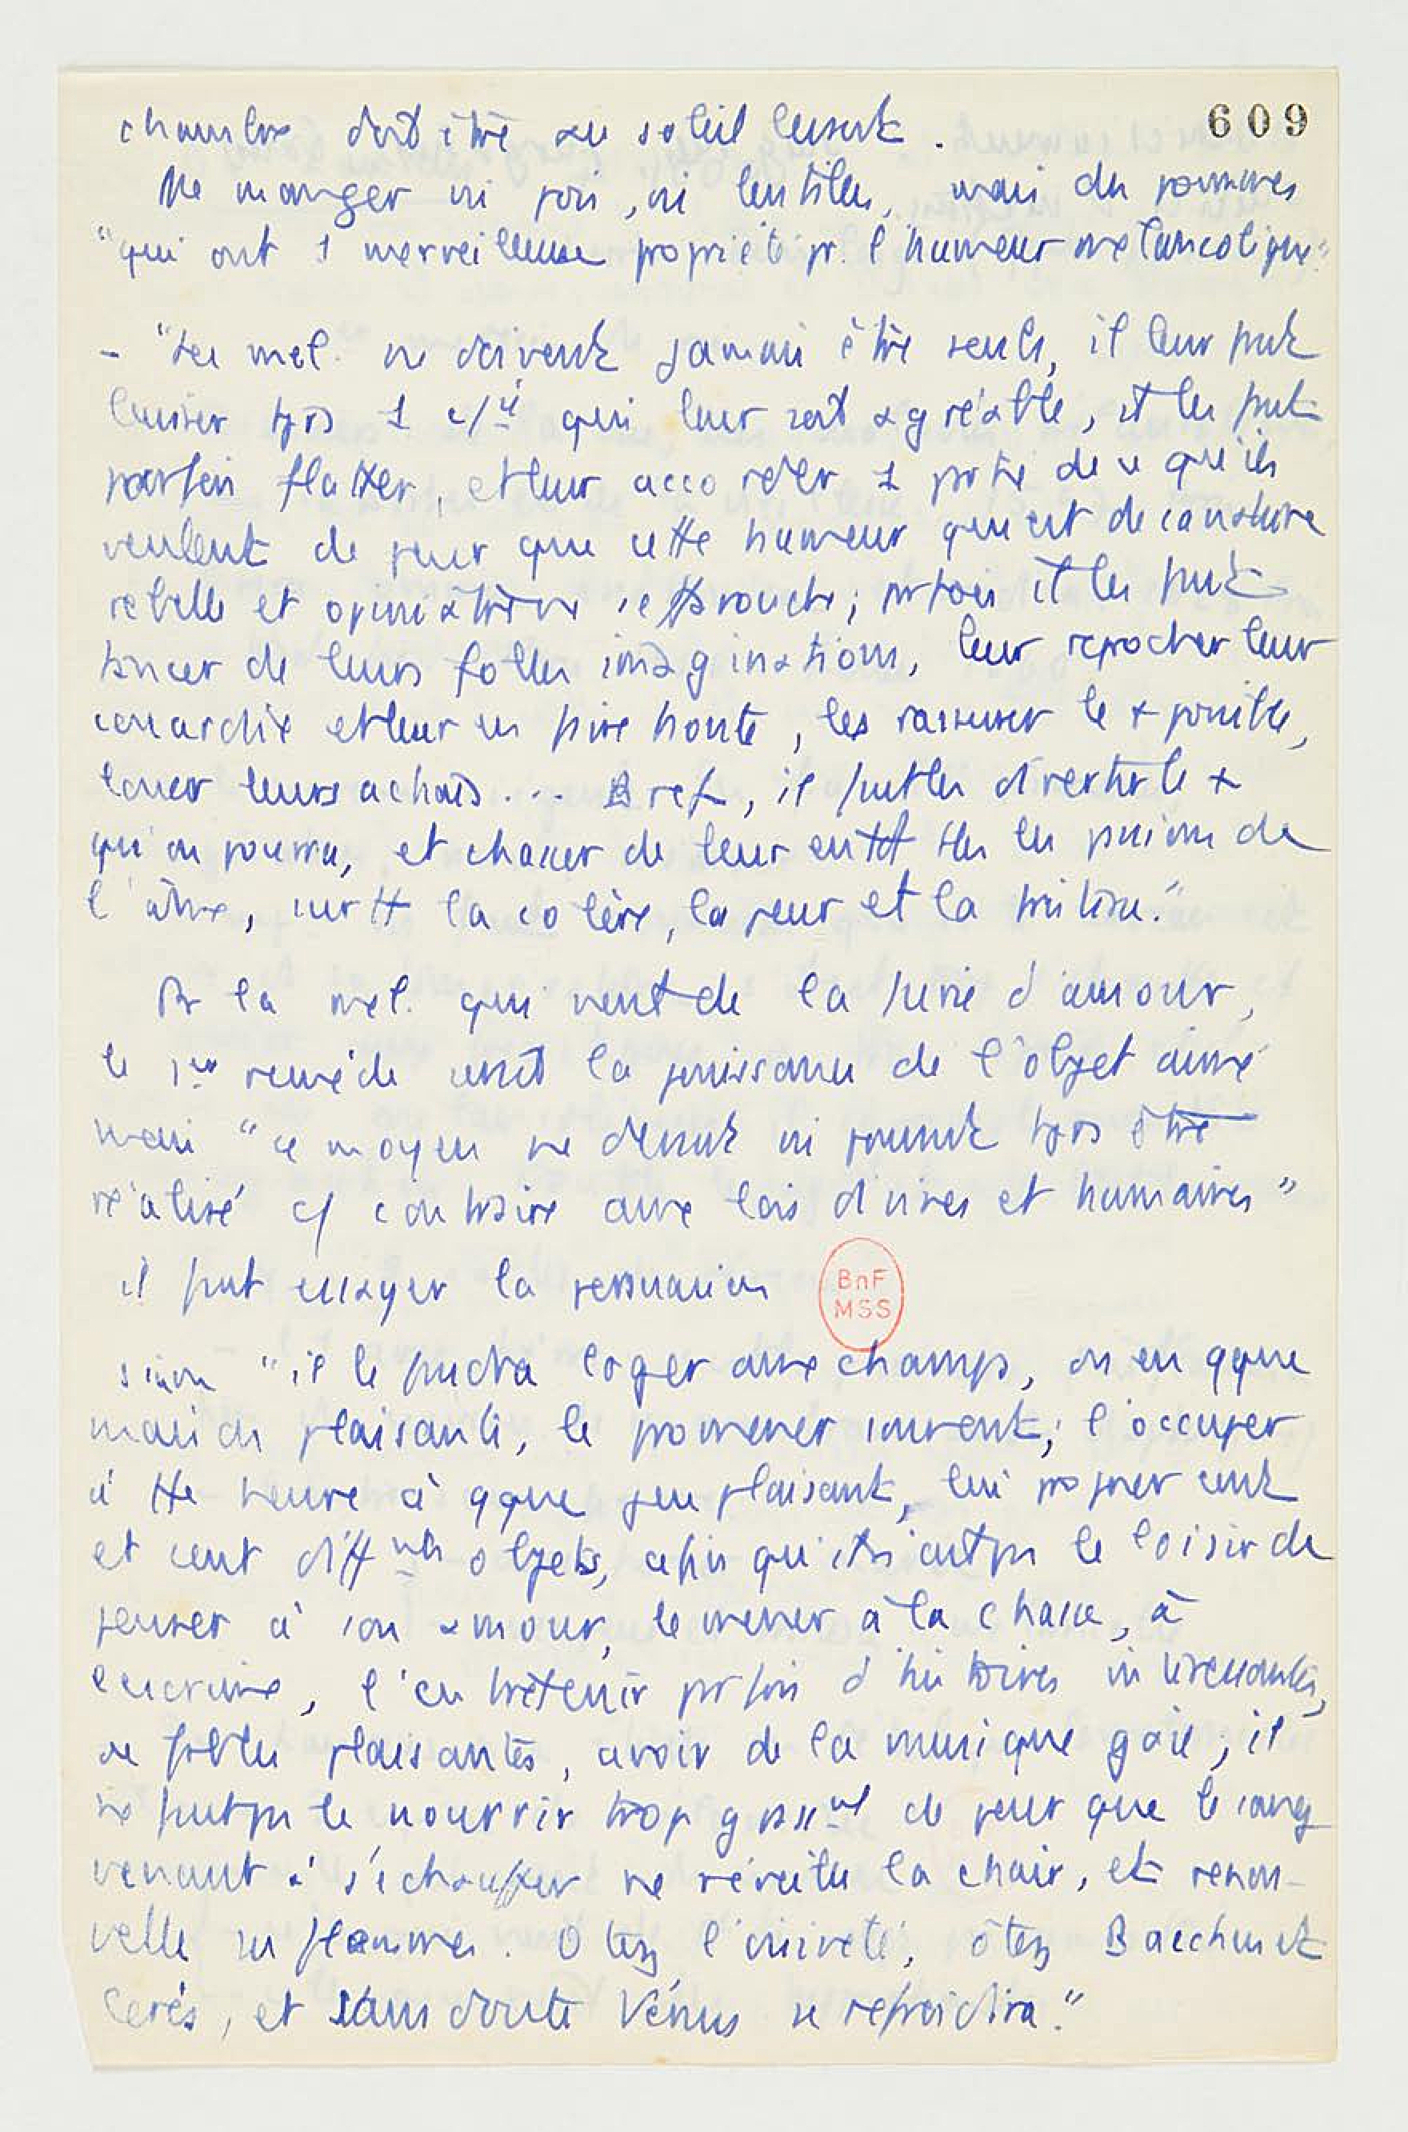 609
chambre doit être au soleil levant.
Ne manger ni pois, ni lentilles, mais des pommes
"qui ont 1 merveilleuse propriété pr. l'humeur mélancolique"
- "Les mél. ne doivent jamais être seuls, il leur faut
laisser tjrs 1 c/ié qui leur soit agréable, et les faut
parfois flatter, et leur accorder 1 partie de ce qu'ils
veulent de peur que cette humeur qui est de sa nature
rebelle et opiniâtre ne s'effarouche; parfois il les faut
tancer de leurs folles imaginations, leur reprocher leur
couardise et leur en faire honte, les rassurer le + possible,
louer leurs achats... Bref, il faut les divertir le +
qu'on pourra, et chasser de leur entdt ttes les passions de
l'âme, surtt la colère, la peur et la tristesse."
Pr la mél. qui vient de la furie d'amour,
le 1er remède serait la jouissance de l'objet aimé
mais "ce moyen ne devant ni pouvant tjrs être
réalisé c/ contraire aux lois divines et humaines"
il faut essayer la persuasion
BnF
MSS
sinon "il le faudra loger aux champs, ou en qque
maison plaisante, le promener souvent; l'occuper
à tte heure à qque jeu plaisant, lui proposer cent
et cent difftes objets, afin qu'il n'ait pas le loisir de
penser à son amour, le mener à la chasse, à
l'escrime, l'entretenir parfois d'histoires intéressantes,
de fables plaisantes, avoir de la musique gaie; il
ne faut pas le nourrir trop grasst de peur que le sang
venant à s'échauffer ne réveille la chair, et renou-
velle ses flammes. Otez l'oisiveté, ôtez Bacchus et
Cérès, et sans doute Vénus se refroidira."